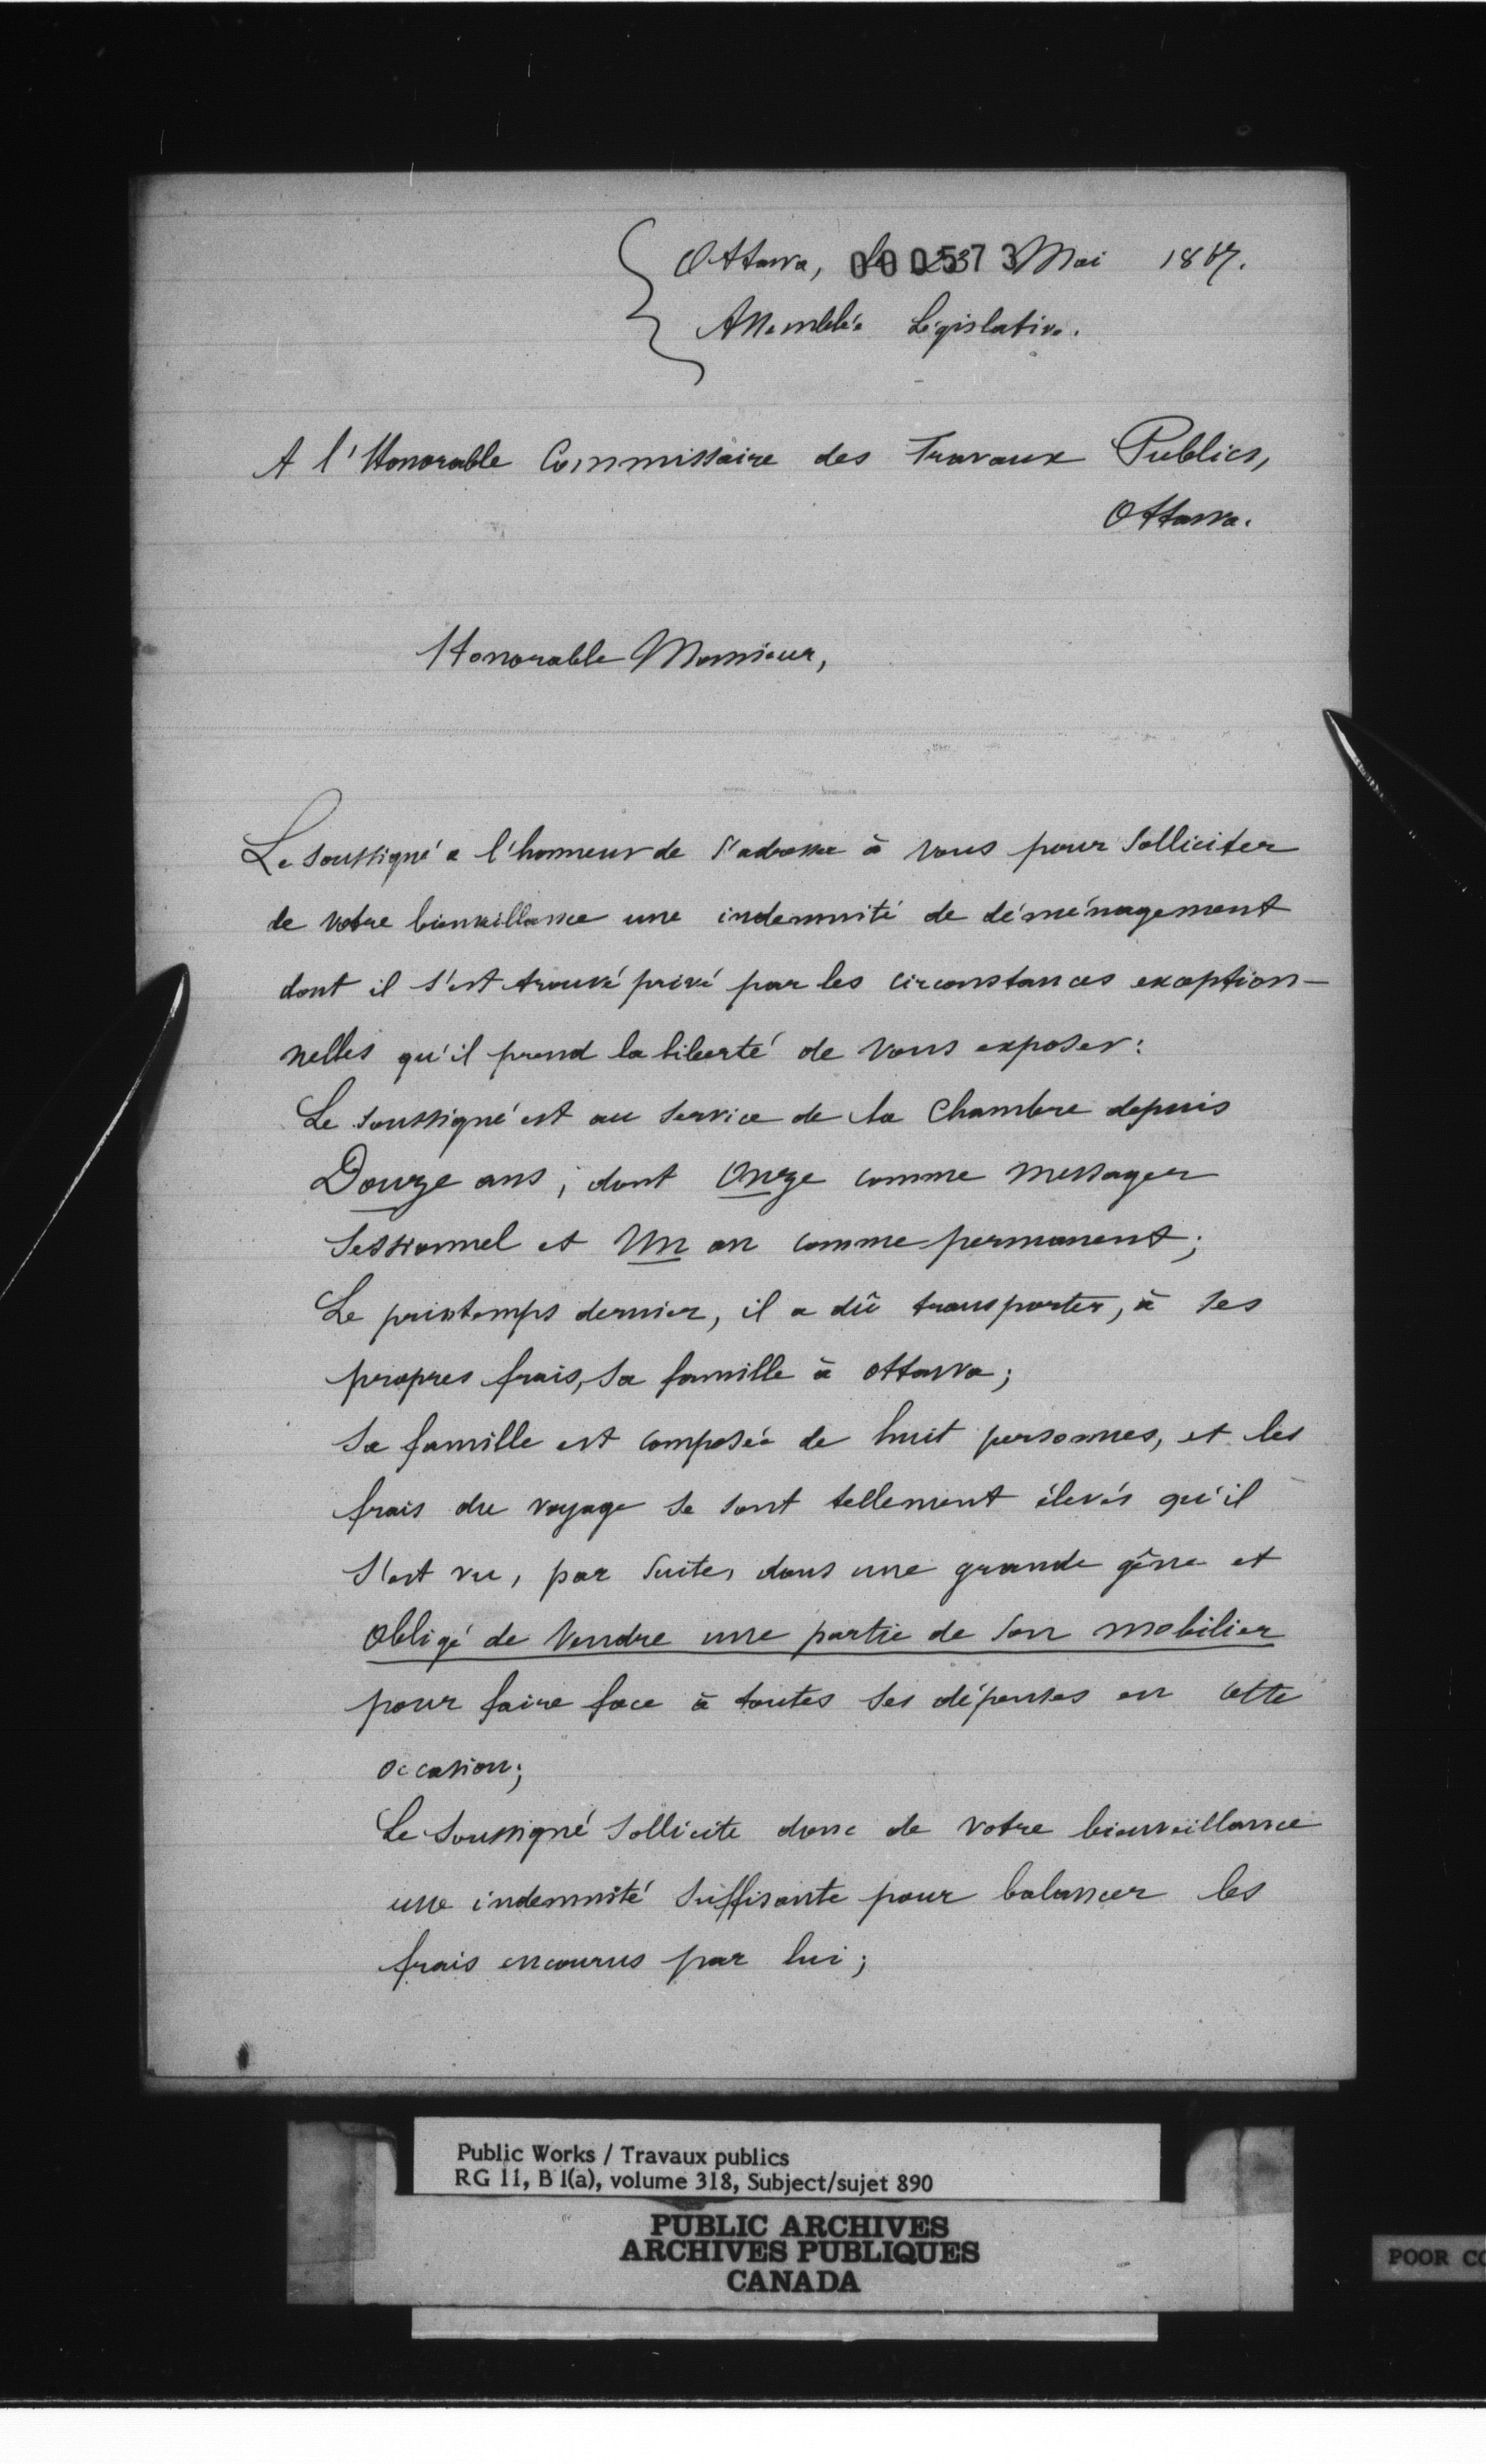 Ottawa, 000573 Mai 1867.
Assemblée Législative.
A l'Honorable Commissaire des Travaux Publics,
Ottawa.
Honorable Monsieur,
Le soussigné a l'honneur de s'adresser à vous pour solliciter
de votre bienveillance une indemnité de déménagement
dont il s'est trouvé privé par les circonstances exception-
nelles qu'il prend la liberté de vous exposer:
Le soussigné est au service de la Chambre depuis
Douze ans, dont Onze comme messager
sessionnel et Un an comme permanent;
Le printemps dernier, il a dû transporter, à ses
propres frais, sa famille à Ottawa;
Sa famille est composée de huit personnes, et les
frais du voyage se sont tellement élevés qu'il
s'est vu, par suite, dans une grande gêne et
obligé de vendre une partie de son mobilier
pour faire face à toutes ses dépenses en cette
occasion;
Le soussigné sollicite donc de votre bienveillance
une indemnité suffisante pour balancer les
frais encourus par lui;
Public Works / Travaux publics
RG 11, B 1(a), volume 318, Subject/sujet 890
PUBLIC ARCHIVES
ARCHIVES PUBLIQUES
CANADA
POOR CO